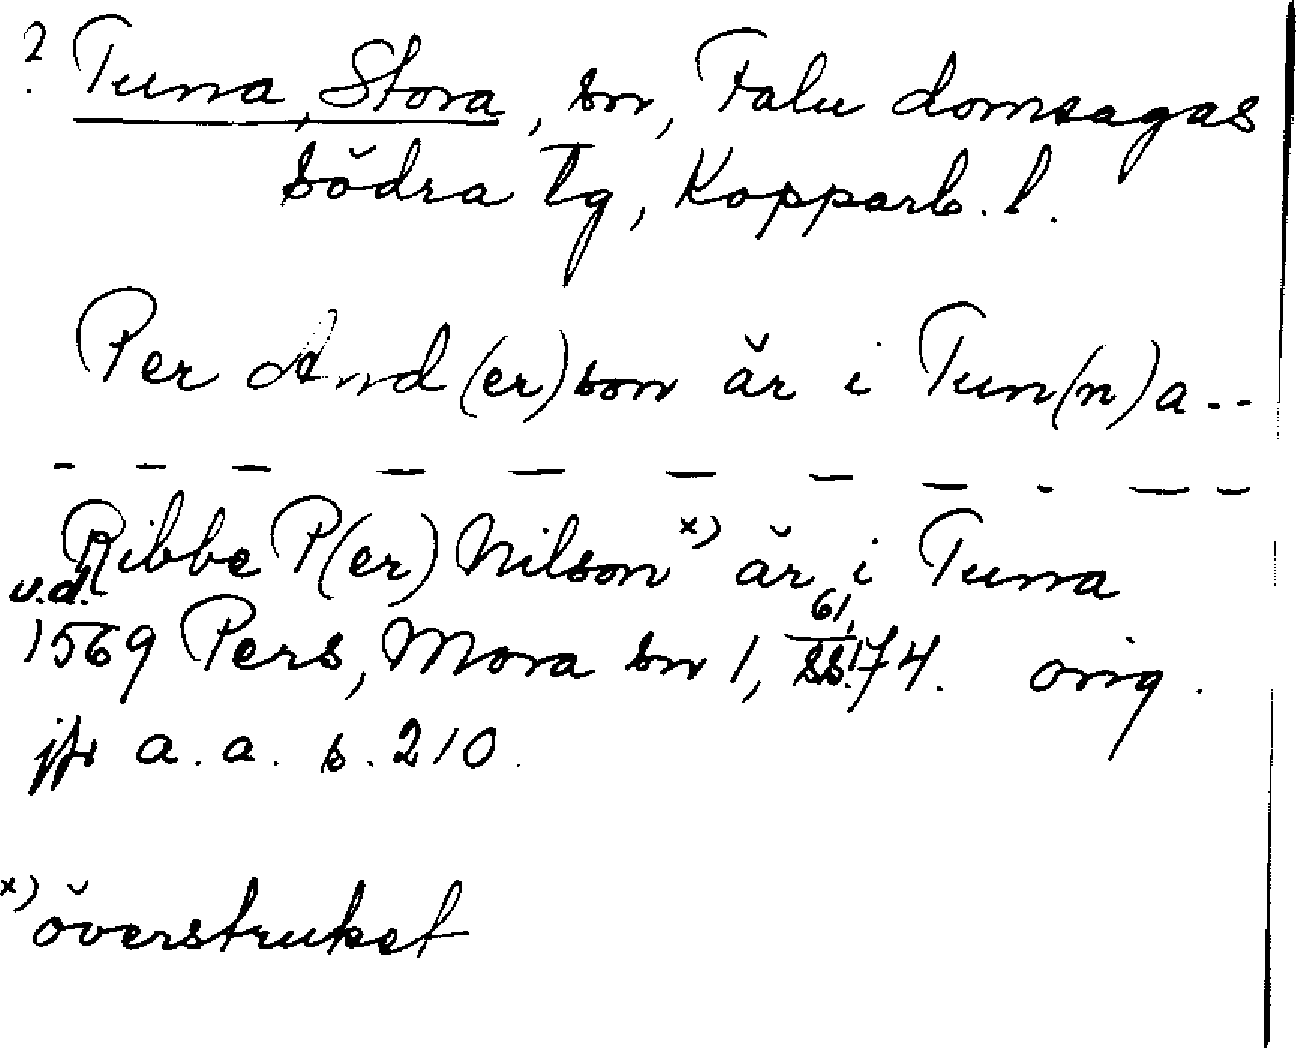 ? Tuna, Stora, sn, Falu domsagas
södra Tg, Kopparb. l.
Per And(er)son är i Tun(n)a --
— — — — — — — — — — —
Ribbe P(er) Nilson x) är i Tuna
v.d.
1569 Pers, Mora sn 1, ss. 61, 174. orig.
jfr a. a. s. 210.
x) överstruket